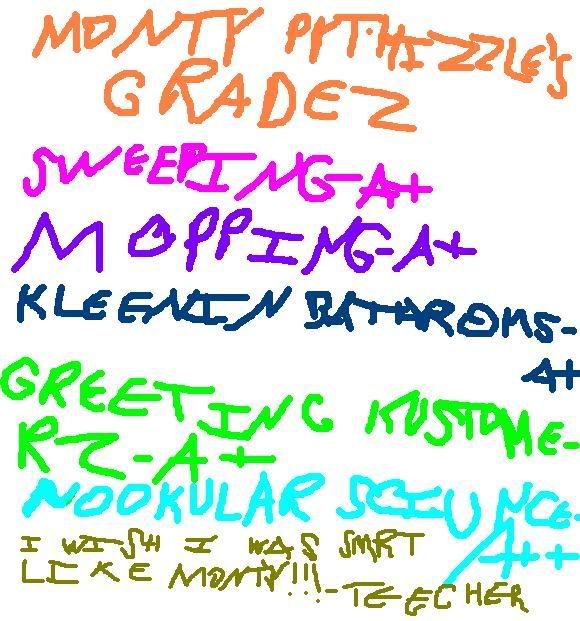 MONTY PPTHIZZLE'S
GRADEZ
SWEEPING-A+
MOPPING-A+
KLEENIN BATHROMS-
A+
GREETING KUSTOME-
RZ-A+
NOOKULAR SCIUNCE-
A++
I WISH I WAS SMRT
LIKE MONTY!!!-TEECHER